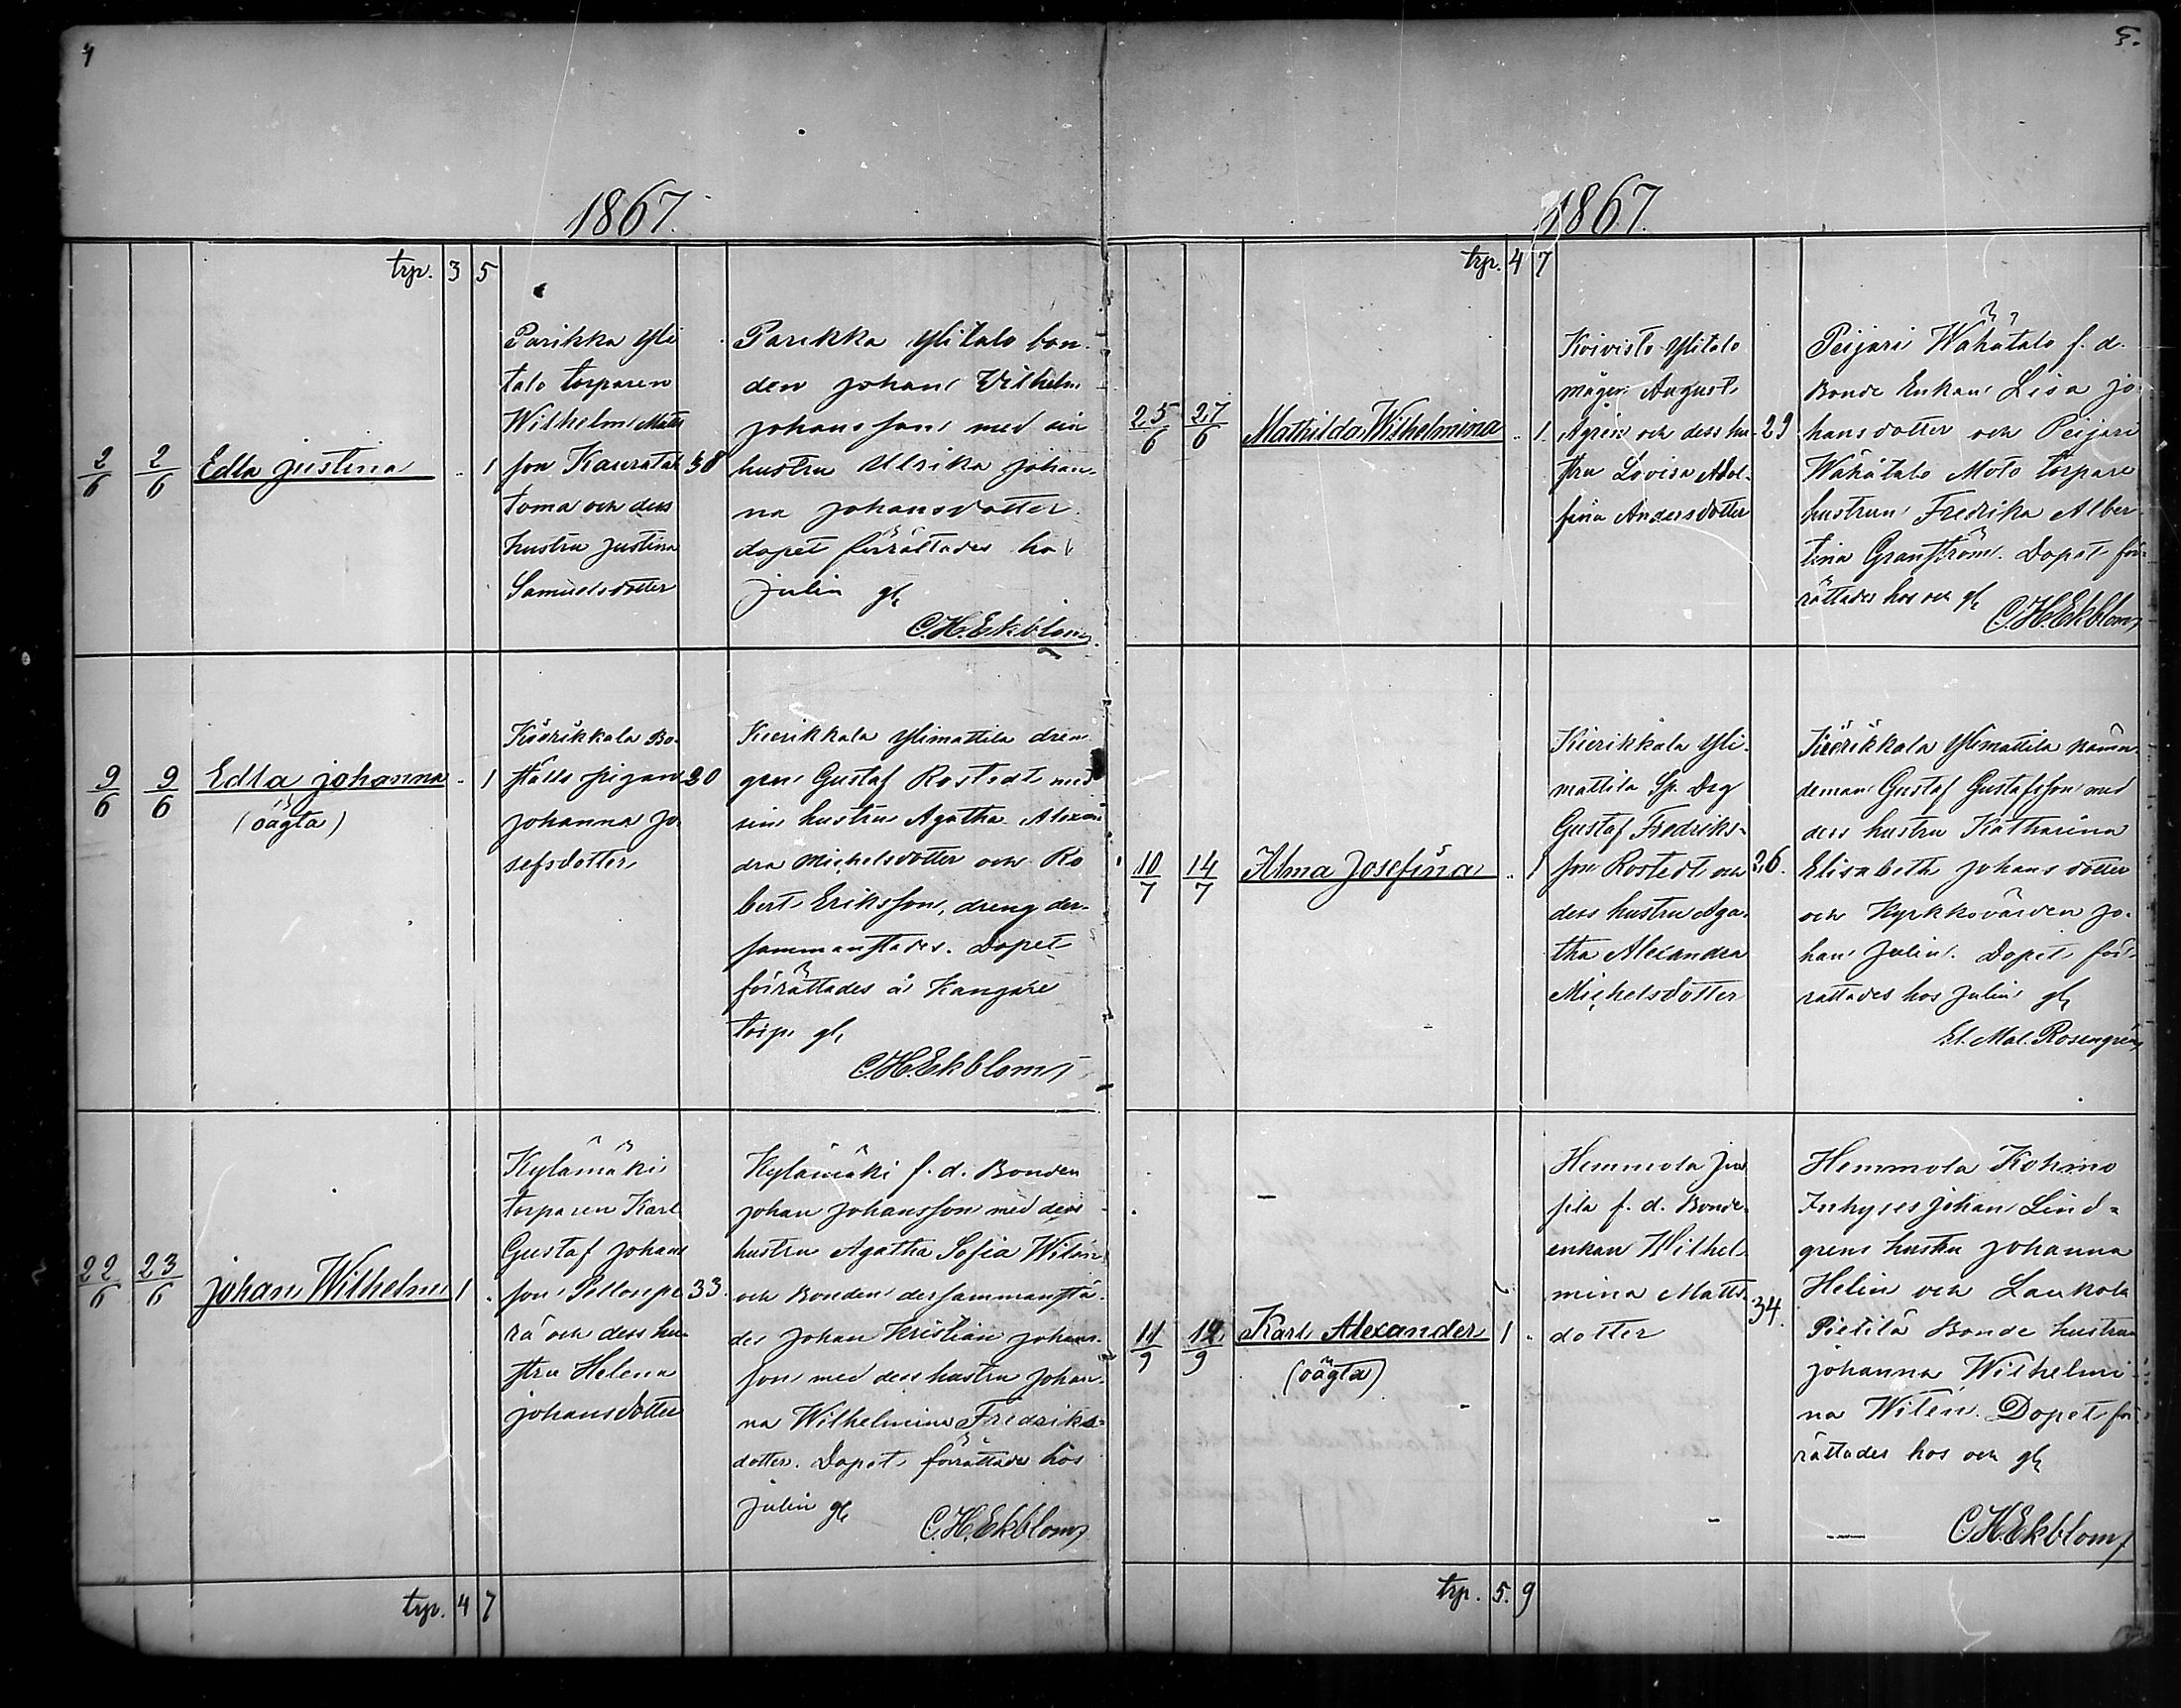 4
1867.
trp. 3 5
2/6 2/6 Edla Justina .. 1
Parikka Yli
talo torparen
Wilhelm Matts
son Kauratak
toma och dess
hustru Justina
Samuelsdotter
38
Parikka Ylitalo bon-
den Johan Wilhelm
Johansson med sin
hustru Ulrika Johan-
na Johansdotter.
dopet förrättades hos
Julin gh
C.H.Ekblom
9/6 9/6 Edla Johanna .. 1
(oägta)
Kierikkala Bo-
ställs pigan
Johanna Jo-
sefsdotter
20
Kierikkala Ylimattila dren-
gen Gustaf Rostedt med
sin hustru Agatha Alexan
dra Michelsdotter och Ro
bert Eriksson, dreng der-
sammanstädes. Dopet
förrättades å Kangare
torp. gh
C.H.Ekblom
22/6 23/6 Johan Wilhelm 1 .
Kylämäki
torparen Karl
Gustaf Johans
son Pellonpe
rä och dess hu-
stru Helena
Johansdotter
33.
Kylämäki f. d. Bonden
Johan Johansson med dess
hustru Agatha Sofia Witen
och Bonden dersammanstä-
des Johan Kristian Johans-
son med dess hustru Johan-
na Wilhelmina Fredriks-
dotter. Dopet förrättades hos
Julin gh
C.H.Ekblom
trp. 4 7
5.
1867.
trp. 4 7
25/6 27/6 Mathilda Wilhelmina .. 1.
Koivisto Ylitalo
mågen August
Agren och dess hu-
stru Lovisa Adol-
fina Andersdotter
29
Peijari Wähätalo f. d.
Bonde Enkan Lisa Jo
hansdotter och Peijari
Wähätalo Moto torpare
hustrun Fredrika Alber
tina Granström. Dopet för-
rättades hos och gh
C.H.Ekblom
10/7 14/7 Alma Josefina .. 1
Kierikkala Yli-
mattila Sp. Drg
Gustaf Fredriks-
son Rostedt och
dess hustru Aga-
tha Alexandra
Michelsdotter
26.
Kierikkala Ylimattila Nämn-
deman Gustaf Gustafsson med
dess hustru Katharina
Elisabeth Johansdotter
och Kyrkkovärden Jo-
han Julin. Dopet för-
rättades hos Julin gh
El. Mal. Rosengren
11/9 12/9 Karl Alexander 1 .
(oägta)
Hemmola Jus
sila f. d. Bonde-
enkan Wilhel
mina Matts-
dotter
34.
Hemmola Kohmo
Inhyses Johan Lind-
grens hustru Johanna
Helin och Laukola
Pietilä Bonde hustrun
Johanna Wilhelmi-
na Witen. Dopet för-
rättades hos och gh
C.H.Ekblom
trp. 5. 9